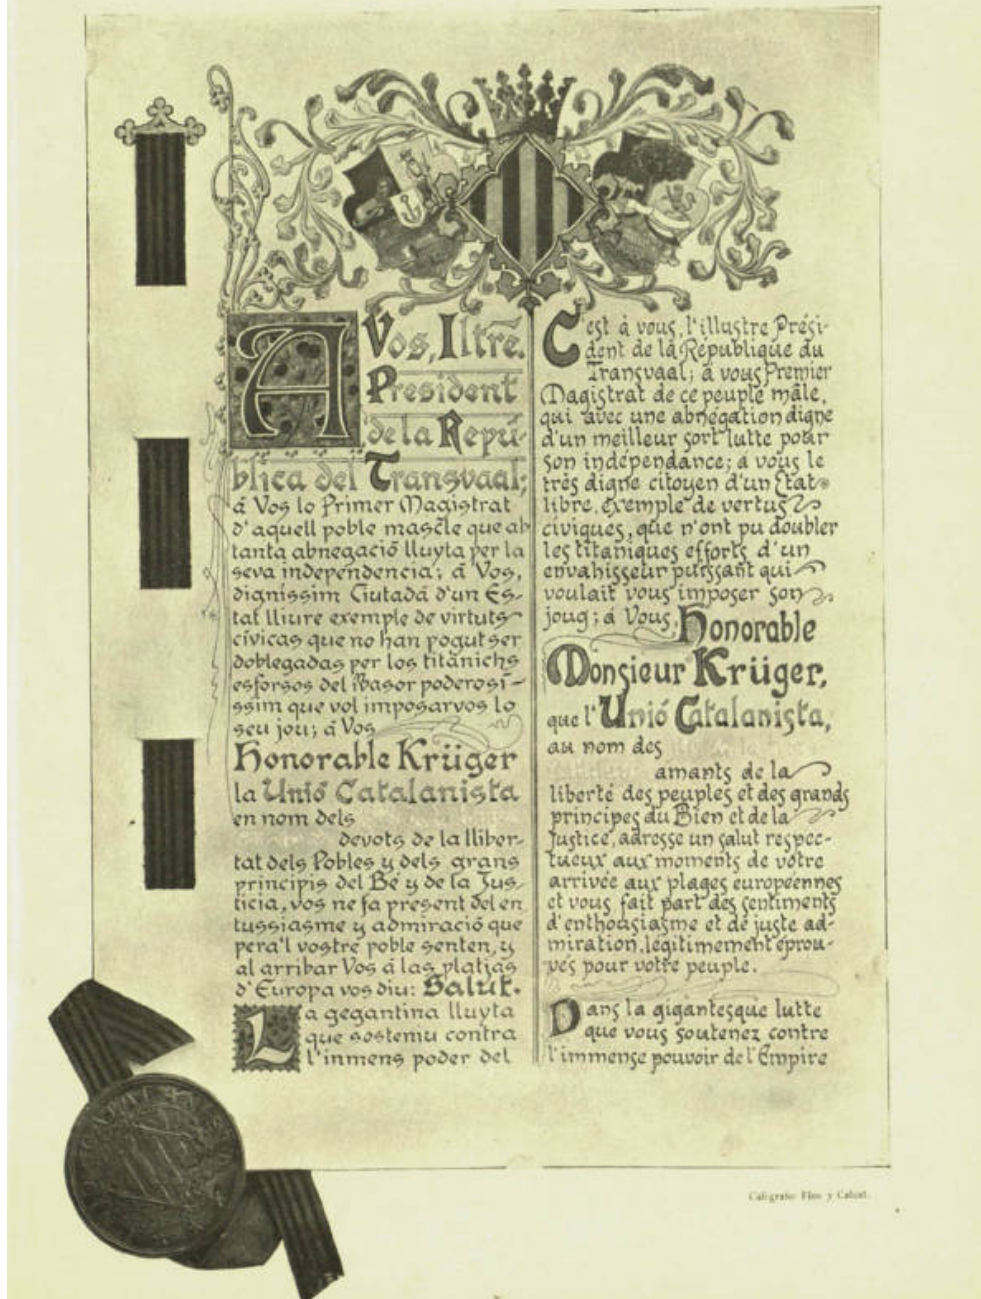 A Vos, Iltre.
President
de la Repú-
blica del Transvaal;
á Vos lo Primer Magistrat
d'aquell poble mascle que ab
tanta abnegació lluyta per la
seva independencia; á Vos,
digníssim Ciutadá d'un Es-
tat lliure exemple de virtuts
cívicas que no han pogut ser
doblegadas per los titánichs
esforsos del ibasor poderosí-
ssim que vol imposarvos lo
seu jou; á Vos
Honorable Krüger
la Unió Catalanista
en nom dels
devots de la lliber-
tat dels Pobles y dels grans
principis del Bé y de la Jus-
ticia, vos ne fa present del en
tussiasme y admiració que
pera'l vostre poble senten, y
al arribar Vos á las platjas
d'Europa vos diu: Salut.
La gegantina lluyta
que sosteniu contra
l'inmens poder del
C'est à vous, l'illustre Prési-
dent de la République du
Transvaal; à vous Premier
Magistrat de ce peuple mâle,
qui avec une abnégation digne
d'un meilleur sort lutte pour
son indépendance; à vous le
très digne citoyen d'un État
libre, exemple de vertus
civiques, que n'ont pu doubler
les titaniques efforts d'un
envahisseur puissant qui
voulait vous imposer son
joug; á Vous, Honorable
Monsieur Krüger,
que l'Unió Catalanista,
au nom des
amants de la
liberté des peuples et des grands
principes du Bien et de la
Justice, adresse un salut respec-
tueux aux moments de votre
arrivée aux plages européennes
et vous fait part des sentiments
d'enthousiasme et de juste ad-
miration, légitimement éprou-
vés pour votre peuple.
Dans la gigantesque lutte
que vous soutenez contre
l'immense pouvoir de l'Empire
Calígrafo: Flos y Calcat.